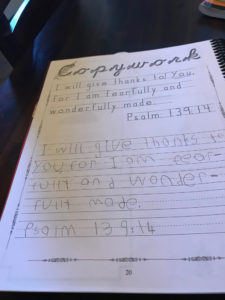 Copywork
I will give thanks to You,
for I am fearfully and
wonderfully made.
Psalm 139:14
I will give thanks to
You for I am fear-
fully and wonder-
fully made.
Psalm 139:14
20